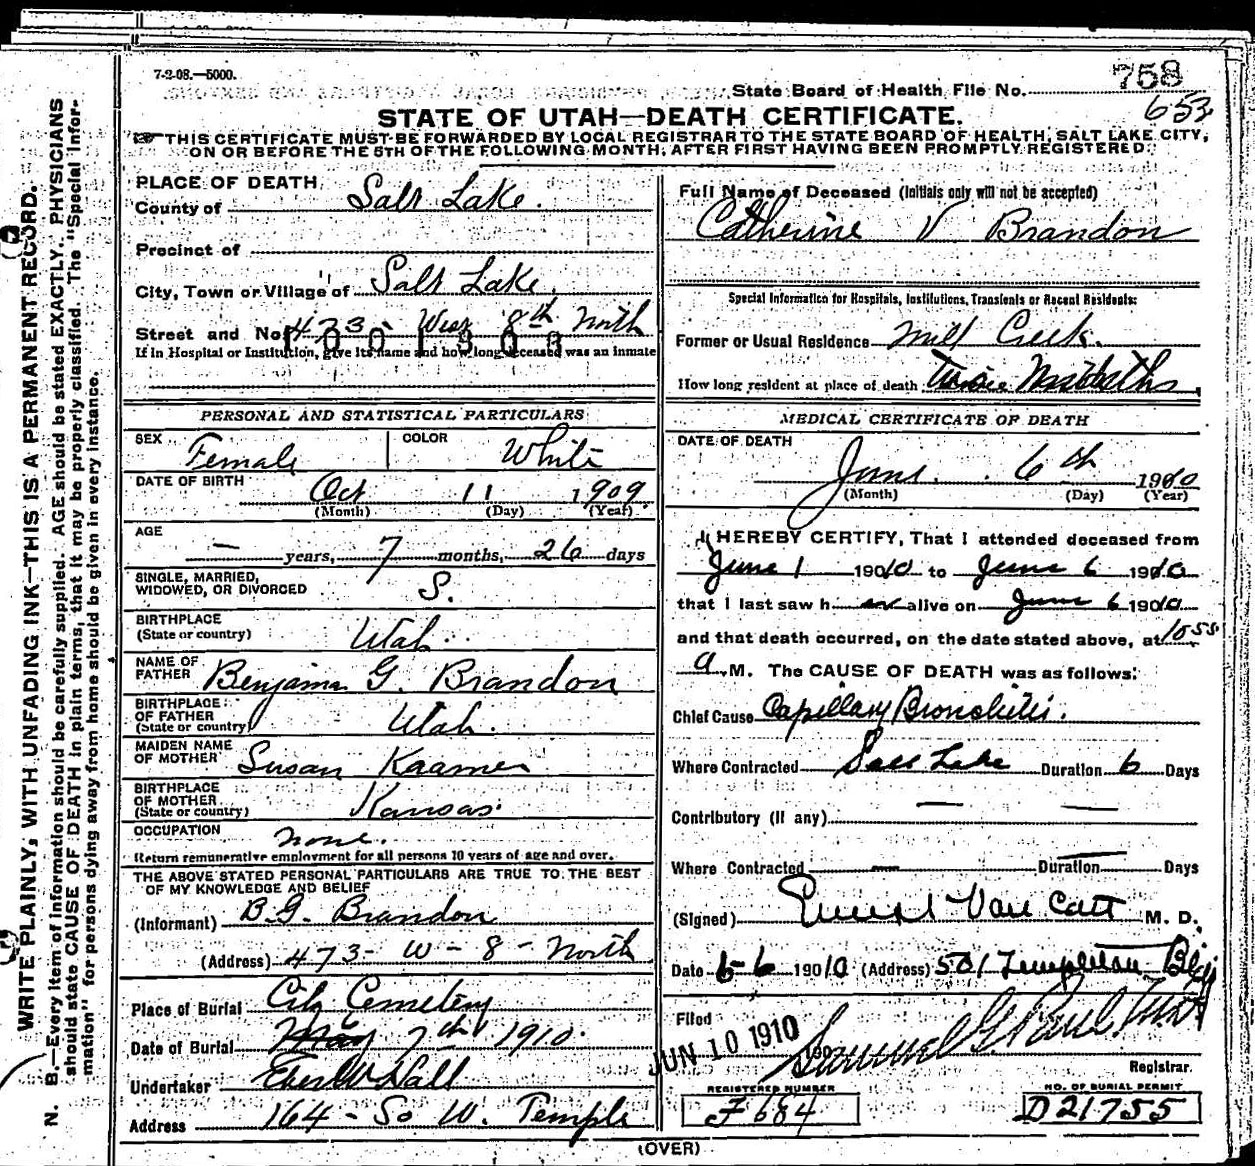 7-2-08.—5000.
758
State Board of Health File No.
653
STATE OF UTAH—DEATH CERTIFICATE.
THIS CERTIFICATE MUST BE FORWARDED BY LOCAL REGISTRAR TO THE STATE BOARD OF HEALTH, SALT LAKE CITY,
ON OR BEFORE THE 5TH OF THE FOLLOWING MONTH, AFTER FIRST HAVING BEEN PROMPTLY REGISTERED.
WRITE PLAINLY, WITH UNFADING INK—THIS IS A PERMANENT RECORD.
N. B.—Every item of information should be carefully supplied. AGE should be stated EXACTLY. PHYSICIANS
should state CAUSE OF DEATH in plain terms, that it may be properly classified. The "Special Infor-
mation" for persons dying away from home should be given in every instance.
PLACE OF DEATH
County of Salt Lake.
Precinct of
City, Town or Village of Salt Lake.
Street and No. 473 - West 8th North
If in Hospital or Institution, give its name and how long deceased was an inmate
PERSONAL AND STATISTICAL PARTICULARS
SEX Female COLOR White
DATE OF BIRTH Oct 11 1909
(Month) (Day) (Year)
AGE
— years, 7 months, 26 days
SINGLE, MARRIED,
WIDOWED, OR DIVORCED S.
BIRTHPLACE
(State or country) Utah
NAME OF
FATHER Benjamin G. Brandon
BIRTHPLACE
OF FATHER
(State or country) Utah.
MAIDEN NAME
OF MOTHER Susan Kaamer
BIRTHPLACE
OF MOTHER
(State or country) Kansas.
OCCUPATION none.
Return remunerative employment for all persons 10 years of age and over.
THE ABOVE STATED PERSONAL PARTICULARS ARE TRUE TO THE BEST
OF MY KNOWLEDGE AND BELIEF
(Informant) B.G. Brandon
(Address) 473 - W - 8 - North
Place of Burial City Cemetery
Date of Burial May 7th 1910.
Undertaker Eber W Hall
Address 164 - So W. Temple
Full Name of Deceased (Initials only will not be accepted)
Catherine V Brandon
Special Information for Hospitals, Institutions, Transients or Recent Residents:
Former or Usual Residence Mill Creek.
How long resident at place of death
MEDICAL CERTIFICATE OF DEATH
DATE OF DEATH
June 6th 1910
(Month) (Day) (Year)
I HEREBY CERTIFY, That I attended deceased from
June 1 1910 to June 6 1910
that I last saw her alive on June 6 1910
and that death occurred, on the date stated above, at 10 55
a M. The CAUSE OF DEATH was as follows:
Chief Cause Capillary Bronchitis.
Where Contracted Salt Lake Duration 6 Days
Contributory (If any) — —
Where Contracted — Duration — Days
(Signed) Ernest Van Cott M. D.
Date 6-6 1910 (Address) 501 Templeton Bldg
Filed JUN 10 1910 190 Samuel G. Paul
Registrar.
REGISTERED NUMBER
F 684
NO. OF BURIAL PERMIT
D21755
(OVER)